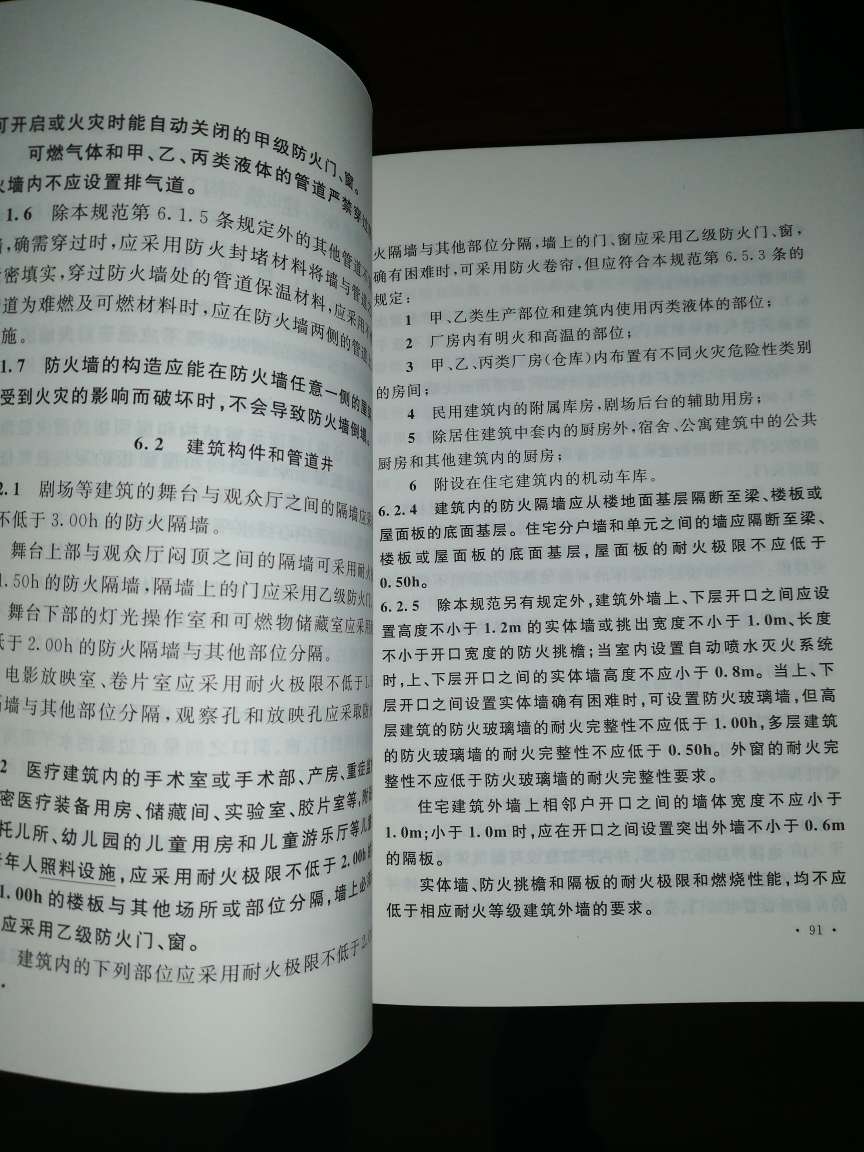 可开启或火灾时能自动关闭的甲级防火门、窗。
可燃气体和甲、乙、丙类液体的管道严禁穿过
火墙内不应设置排气道。
1.6 除本规范第 6.1.5 条规定外的其他管道不
,确需穿过时,应采用防火封堵材料将墙与管道
密填实,穿过防火墙处的管道保温材料,应采用不
道为难燃及可燃材料时,应在防火墙两侧的管道
施。
1.7 防火墙的构造应能在防火墙任意一侧的屋
受到火灾的影响而破坏时,不会导致防火墙倒塌。
6.2 建筑构件和管道井
2.1 剧场等建筑的舞台与观众厅之间的隔墙应采
不低于 3.00h 的防火隔墙。
舞台上部与观众厅闷顶之间的隔墙可采用耐火
1.50h 的防火隔墙,隔墙上的门应采用乙级防火门。
舞台下部的灯光操作室和可燃物储藏室应采用
低于 2.00h 的防火隔墙与其他部位分隔。
电影放映室、卷片室应采用耐火极限不低于1.
隔墙与其他部位分隔,观察孔和放映孔应采取防火
2 医疗建筑内的手术室或手术部、产房、重症监
密医疗装备用房、储藏间、实验室、胶片室等,附
托儿所、幼儿园的儿童用房和儿童游乐厅等儿童
年人照料设施,应采用耐火极限不低于 2.00h
1.00h 的楼板与其他场所或部位分隔,墙上必须
应采用乙级防火门、窗。
建筑内的下列部位应采用耐火极限不低于2.
火隔墙与其他部位分隔,墙上的门、窗应采用乙级防火门、窗,
确有困难时,可采用防火卷帘,但应符合本规范第 6.5.3 条的
规定:
1 甲、乙类生产部位和建筑内使用丙类液体的部位;
2 厂房内有明火和高温的部位;
3 甲、乙、丙类厂房(仓库)内布置有不同火灾危险性类别
的房间;
4 民用建筑内的附属库房,剧场后台的辅助用房;
5 除居住建筑中套内的厨房外,宿舍、公寓建筑中的公共
厨房和其他建筑内的厨房;
6 附设在住宅建筑内的机动车库。
6.2.4 建筑内的防火隔墙应从楼地面基层隔断至梁、楼板或
屋面板的底面基层。住宅分户墙和单元之间的墙应隔断至梁、
楼板或屋面板的底面基层,屋面板的耐火极限不应低于
0.50h。
6.2.5 除本规范另有规定外,建筑外墙上、下层开口之间应设
置高度不小于 1.2m 的实体墙或挑出宽度不小于 1.0m、长度
不小于开口宽度的防火挑檐;当室内设置自动喷水灭火系统
时,上、下层开口之间的实体墙高度不应小于 0.8m。当上、下
层开口之间设置实体墙确有困难时,可设置防火玻璃墙,但高
层建筑的防火玻璃墙的耐火完整性不应低于 1.00h,多层建筑
的防火玻璃墙的耐火完整性不应低于 0.50h。外窗的耐火完
整性不应低于防火玻璃墙的耐火完整性要求。
住宅建筑外墙上相邻户开口之间的墙体宽度不应小于
1.0m;小于 1.0m 时,应在开口之间设置突出外墙不小于 0.6m
的隔板。
实体墙、防火挑檐和隔板的耐火极限和燃烧性能,均不应
低于相应耐火等级建筑外墙的要求。
• 91 •